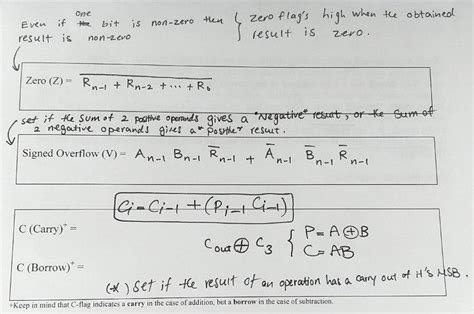 Even if one the bit is non-zero then
result is non-zero
{ zero flag's high when the obtained
result is zero.
Zero (Z) = R̅n-1 + Rn-2 + ... + R0
set if the sum of 2 positive operands gives a "Negative" result, or the sum of
2 negative operands gives a "Positive" result.
Signed Overflow (V) = An-1 Bn-1 R̅n-1 + A̅n-1 B̅n-1 R̅n-1
Ci = Ci-1 + (Pi-1 Ci-1)
C (Carry)⁺ =
Cout ⊕ C3 { P = A ⊕ B
C = AB
C (Borrow)⁺ =
(*) Set if the result of an operation has a carry out of it's MSB.
+Keep in mind that C-flag indicates a carry in the case of addition, but a borrow in the case of subtraction.